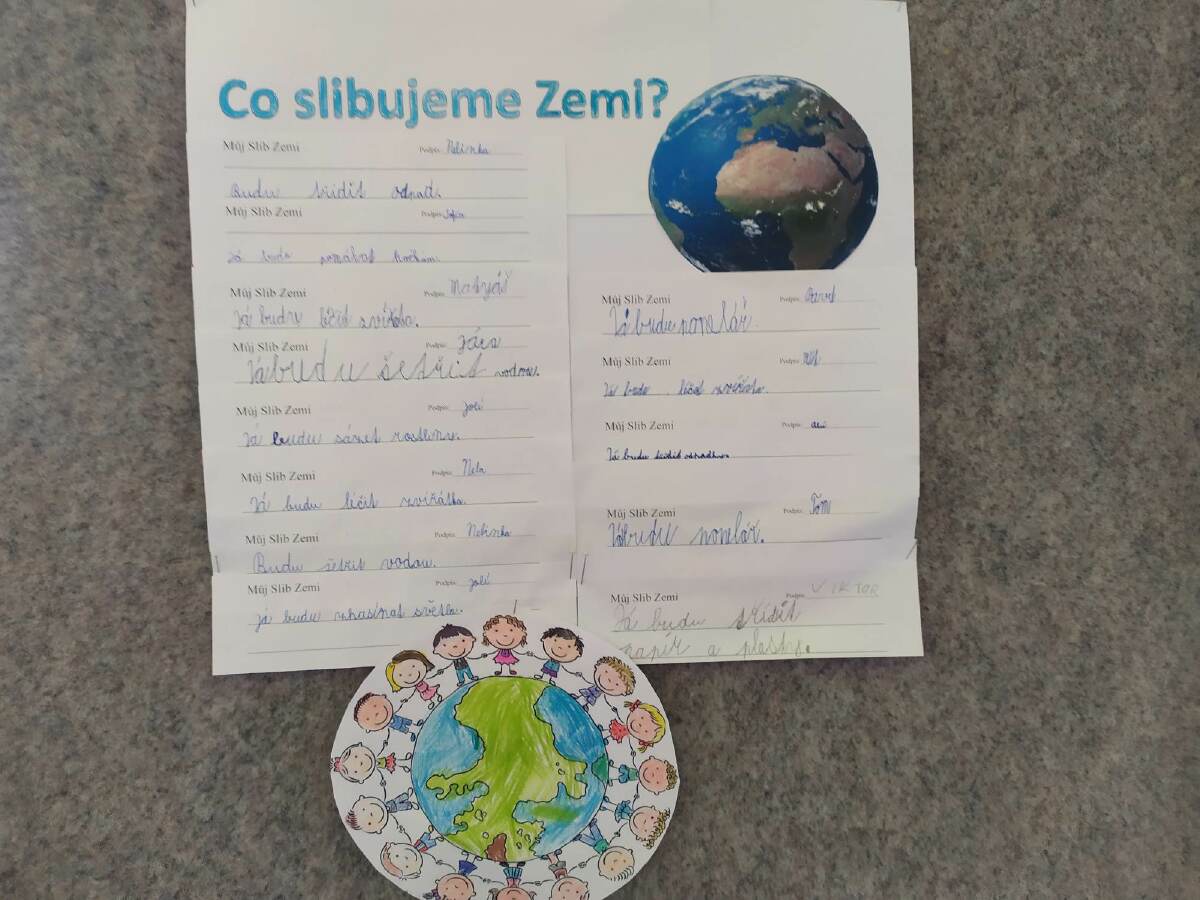 Co slibujeme Zemi?
Můj Slib Zemi Podpis: Nelinka
Budu třídit odpad.
Můj Slib Zemi Podpis: Sofia
Já budu pomábat
Můj Slib Zemi Podpis: Matyáš
Já budu léčit zvířata.
Můj Slib Zemi Podpis: Jára
Já budu šetřit vodou.
Můj Slib Zemi Podpis: Jolí
Já budu sázet rostliny.
Můj Slib Zemi Podpis: Nela
Já budu léčit zvířátka.
Můj Slib Zemi Podpis: Nelinka
Budu šetřit vodou.
Můj Slib Zemi Podpis: Jolí
Já budu zhasínat světla.
Můj Slib Zemi Podpis:
Já budu popelář.
Můj Slib Zemi Podpis:
Já budu léčit zvířata.
Můj Slib Zemi Podpis:
Já budu třídit
Můj Slib Zemi Podpis: Tom
Já budu popelář.
Můj Slib Zemi Podpis: VIKTOR
Já budu třídit
papír a plasty.